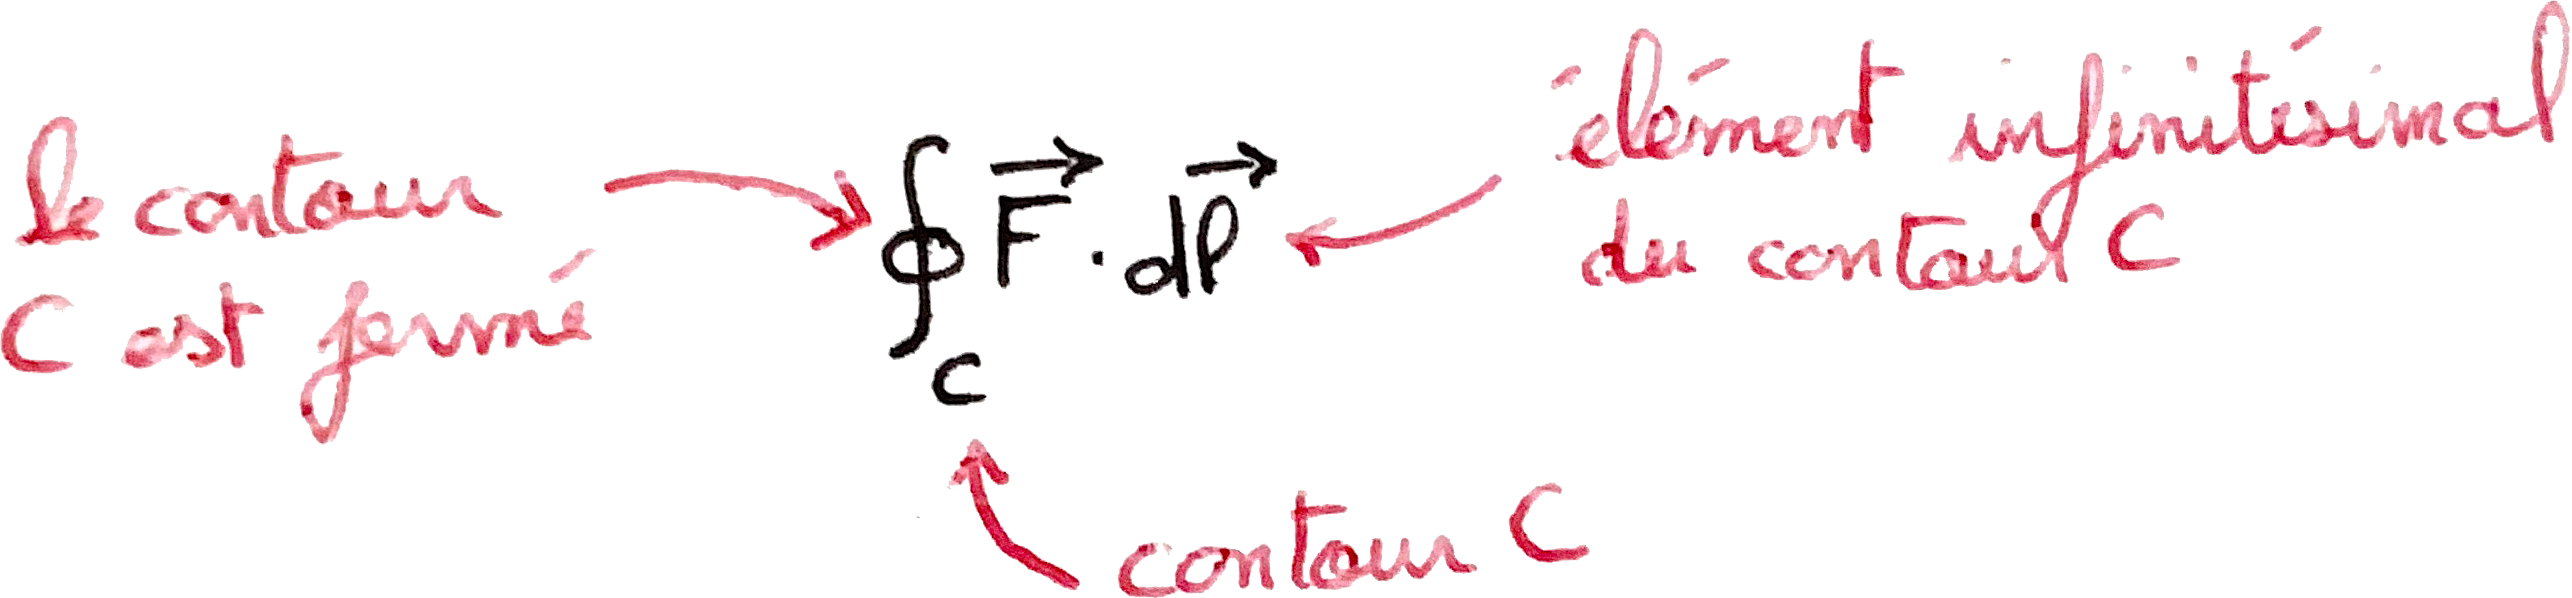 le contour
C est fermé
∮ F⃗ · dl⃗
C
élément infinitésimal
du contour C
contour C